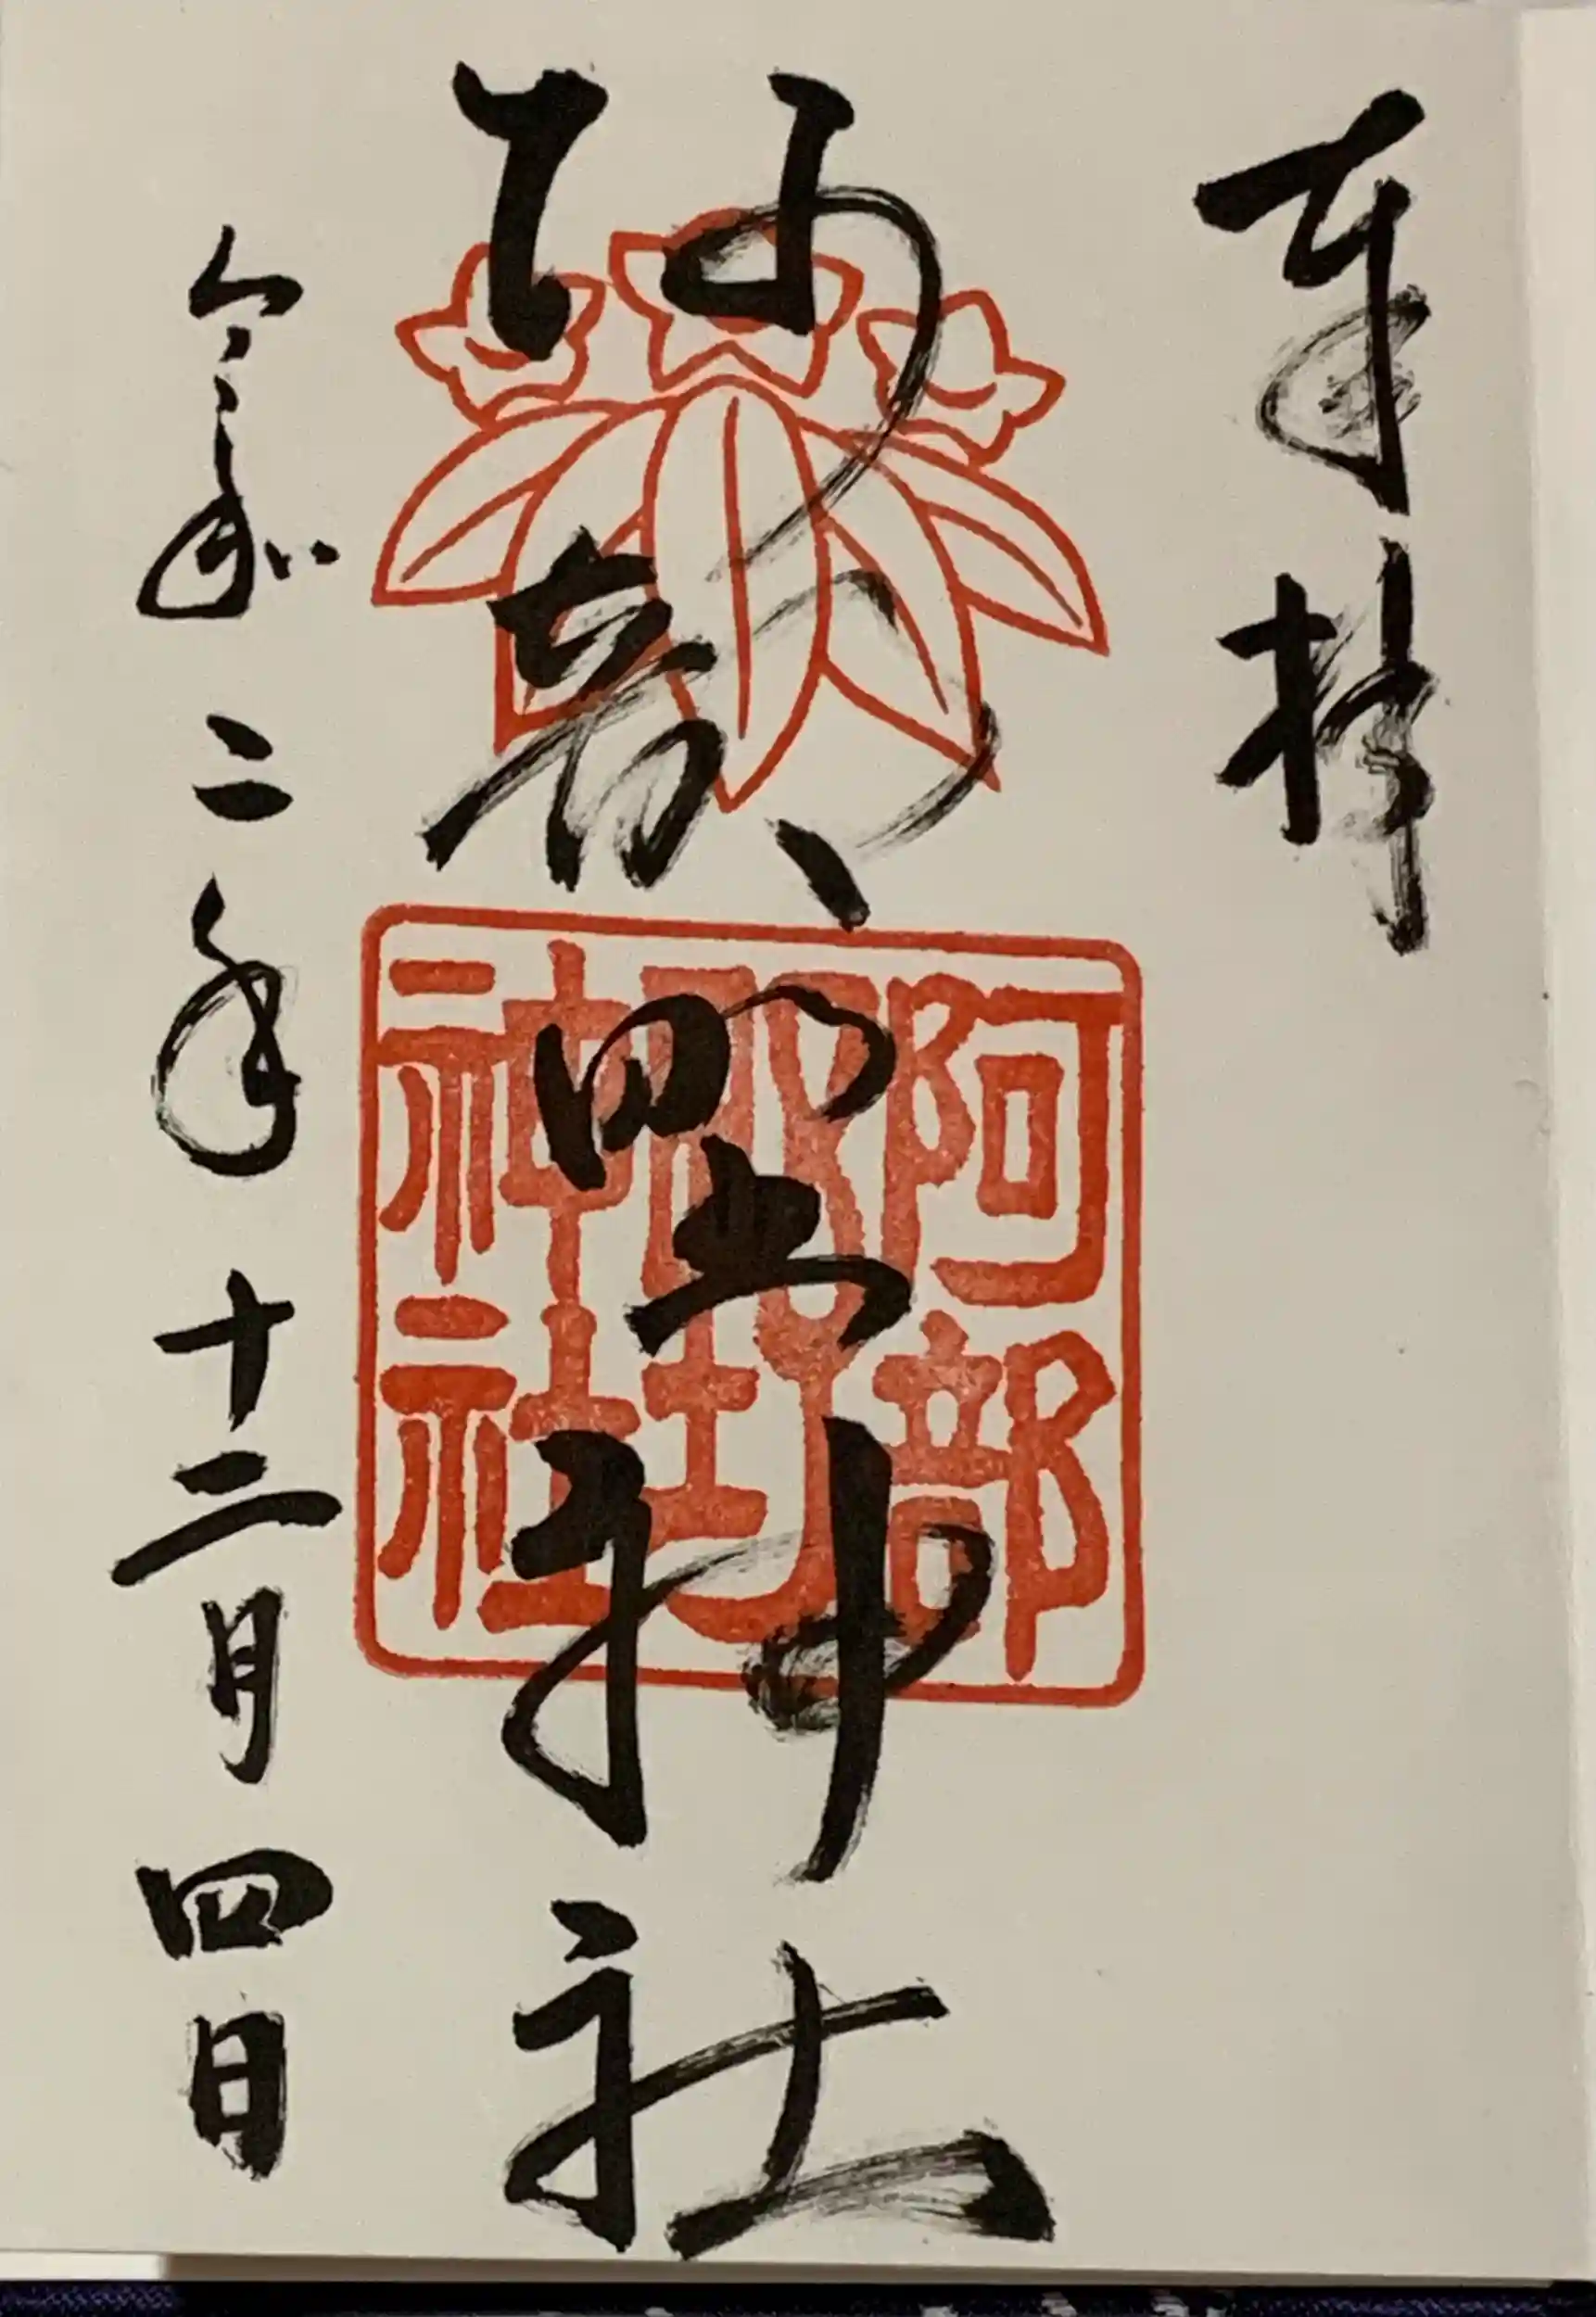 奉拝
阿部野神社
令和二年十二月四日
阿部
野
神社